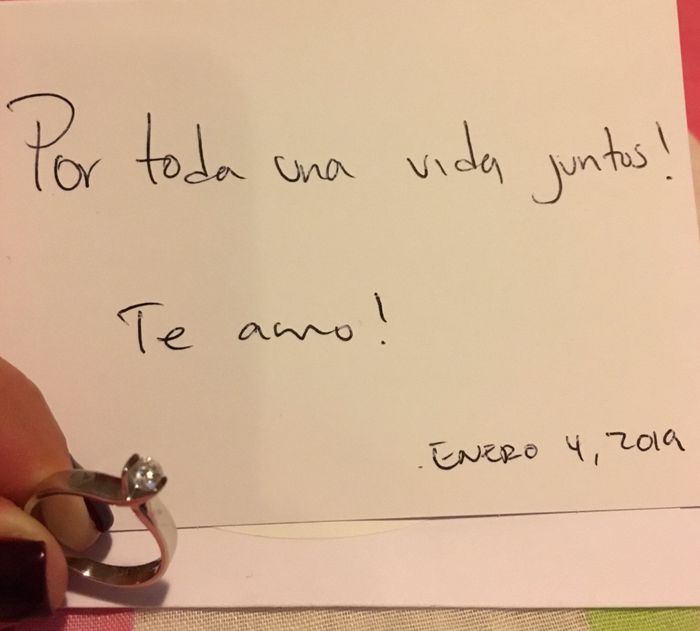 Por toda una vida juntos!
Te amo!
ENERO 4, 2019